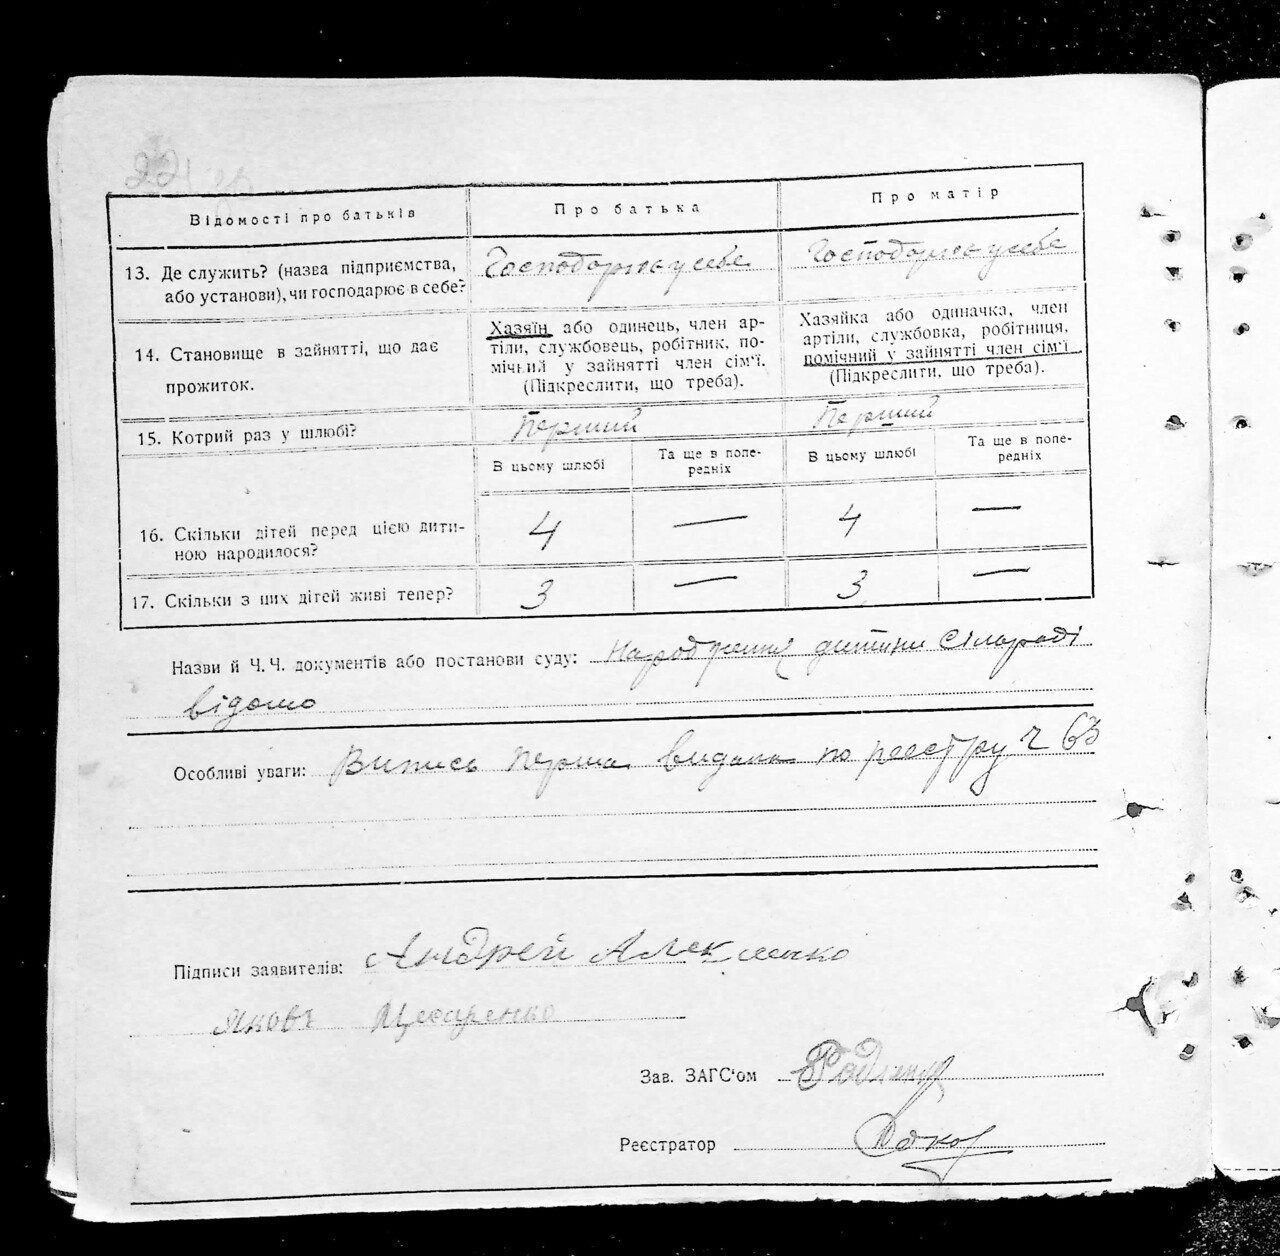 Відомості про батьків
Про батька
Про матір
13. Де служить? (назва підприємства,
або установи), чи господарює в себе?
Господарює у себе
Господарює у себе
14. Становище в зайнятті, що дає
прожиток.
Хазяїн або одинець, член ар-
тілі, службовець, робітник, по-
мічний у зайнятті член сім'ї.
(Підкреслити, що треба).
Хазяйка або одиначка, член
артілі, службовка, робітниця,
помічний у зайнятті член сім'ї
(Підкреслити, що треба).
15. Котрий раз у шлюбі?
Перший
Перший
В цьому шлюбі
Та ще в попе-
редніх
В цьому шлюбі
Та ще в попе-
редніх
16. Скільки дітей перед цією дити-
ною народилося?
4 — 4 —
17. Скільки з цих дітей живі тепер?
3 — 3 —
Назви й Ч.Ч. документів або постанови суду: Народження дитини Сількраді
відомо
Особливі уваги: Випись перша видана по реєстру Ч 63
Підписи заявителів: Андрей
Яковъ Цесаренко
Зав. ЗАГС'ом
Реєстратор